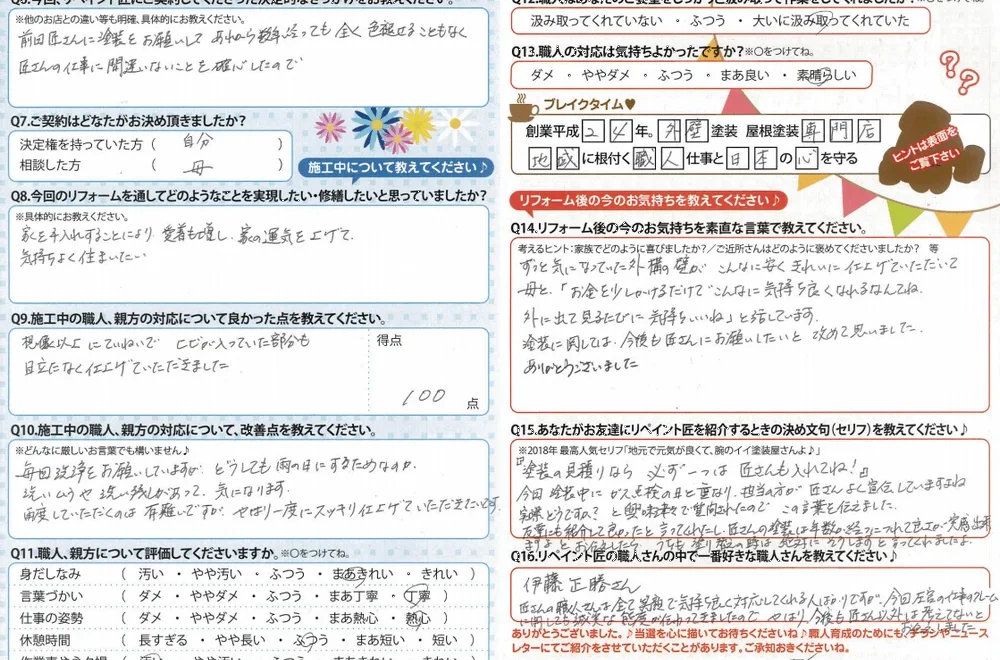 ※他のお店との違い等も明確、具体的にお教えください。
前回匠さんに塗装をお願いして あれから数年経っても全く色褪せることもなく
匠さんの仕事に間違いないことを確心したので
Q7.ご契約はどなたがお決め頂きましたか?
決定権を持っていた方 ( 自分 )
相談した方 ( 母 )
施工中について教えてください♪
Q8.今回のリフォームを通してどのようなことを実現したい・修繕したいと思っていましたか?
※具体的にお教えください。
家を手入れすることにより 愛着も増し、家の運気を上げて、
気持ちよく住まいたい
Q9.施工中の職人、親方の対応について良かった点を教えてください。
想像以上にていねいで ヒビが入っていた部分も
目立たなく仕上げていただきました
得点
100 点
Q10.施工中の職人、親方の対応について、改善点を教えてください。
※どんなに厳しいお言葉でも構いません♪
毎回洗浄をお願いしていますが どうしても雨の日にするためなのか、
洗いムラや洗い残しがあって、気になります。
再度していただくのは有難いですが、やはり一度にスッキリ仕上げていただきたいです
Q11.職人、親方について評価してくださいますか。※○をつけてね。
身だしなみ ( 汚い ・ やや汚い ・ ふつう ・ まあきれい ・ きれい )
言葉づかい ( ダメ ・ ややダメ ・ ふつう ・ まあ丁寧 ・ 丁寧 )
仕事の姿勢 ( ダメ ・ ややダメ ・ ふつう ・ まあ熱心 ・ 熱心 )
休憩時間 ( 長すぎる ・ やや長い ・ ふつう ・ まあ短い ・ 短い )
汲み取ってくれていない ・ ふつう ・ 大いに汲み取ってくれていた
Q13.職人の対応は気持ちよかったですか?※○をつけてね。
ダメ ・ ややダメ ・ ふつう ・ まあ良い ・ 素晴らしい
ブレイクタイム♥
創業平成24年。外壁塗装 屋根塗装専門店
地域に根付く職人仕事と日本の心を守る
ヒントは表面を
ご覧下さい
リフォーム後の今のお気持ちを教えてください♪
Q14.リフォーム後の今のお気持ちを素直な言葉で教えてください。
考えるヒント:家族でどのように喜びましたか?/ご近所さんはどのように褒めてくださいましたか? 等
ずっと気になっていた外構の壁が こんなに安くきれいに仕上げていただいて
母と、「お金を少しかけるだけでこんなに気持ち良くなれるなんてね。
外に出て見るたびに気持ちいいね」と話しています。
塗装に関しては、今後も匠さんにお願いしたいと改めて思いました。
ありがとうございました
Q15.あなたがお友達にリペイント匠を紹介するときの決め文句(セリフ)を教えてください♪
※2018年最高人気セリフ「地元で元気が良くて、腕のイイ塗装屋さんよ♪」
『塗装の見積りなら 必ず一つは 匠さんも入れてね!』
今回塗装中にガス点検の日と重なり、担当の方が 匠さんよく宣伝していますよね
実際どうですか? と興味津々で質問されたので この言葉を伝えました。
友達も紹介して良かったと言ってくれたし、匠さんの塗装は年数が経つにつれて良さが実感出来
ますよとお伝えしたら、うちも塗り替えの時は絶対にそうしますと言ってくれましたよ。
Q16.リペイント匠の職人さんの中で一番好きな職人さんを教えてください♪
伊藤正勝さん
匠さんの職人さんは全て笑顔で気持ち良く対応してくれる人ばかりですが、今回左官の仕事のクレーム
に関しても誠実な態度が伝わってきましたので やはり 今後も匠さん以外は考えてないと
ありがとうございました。♪当選を心に描いてお待ちくださいね♪職人育成のためにも、チラシやニュース
レターにてご紹介をさせていただくことがあります。ご承知おきくださいね。